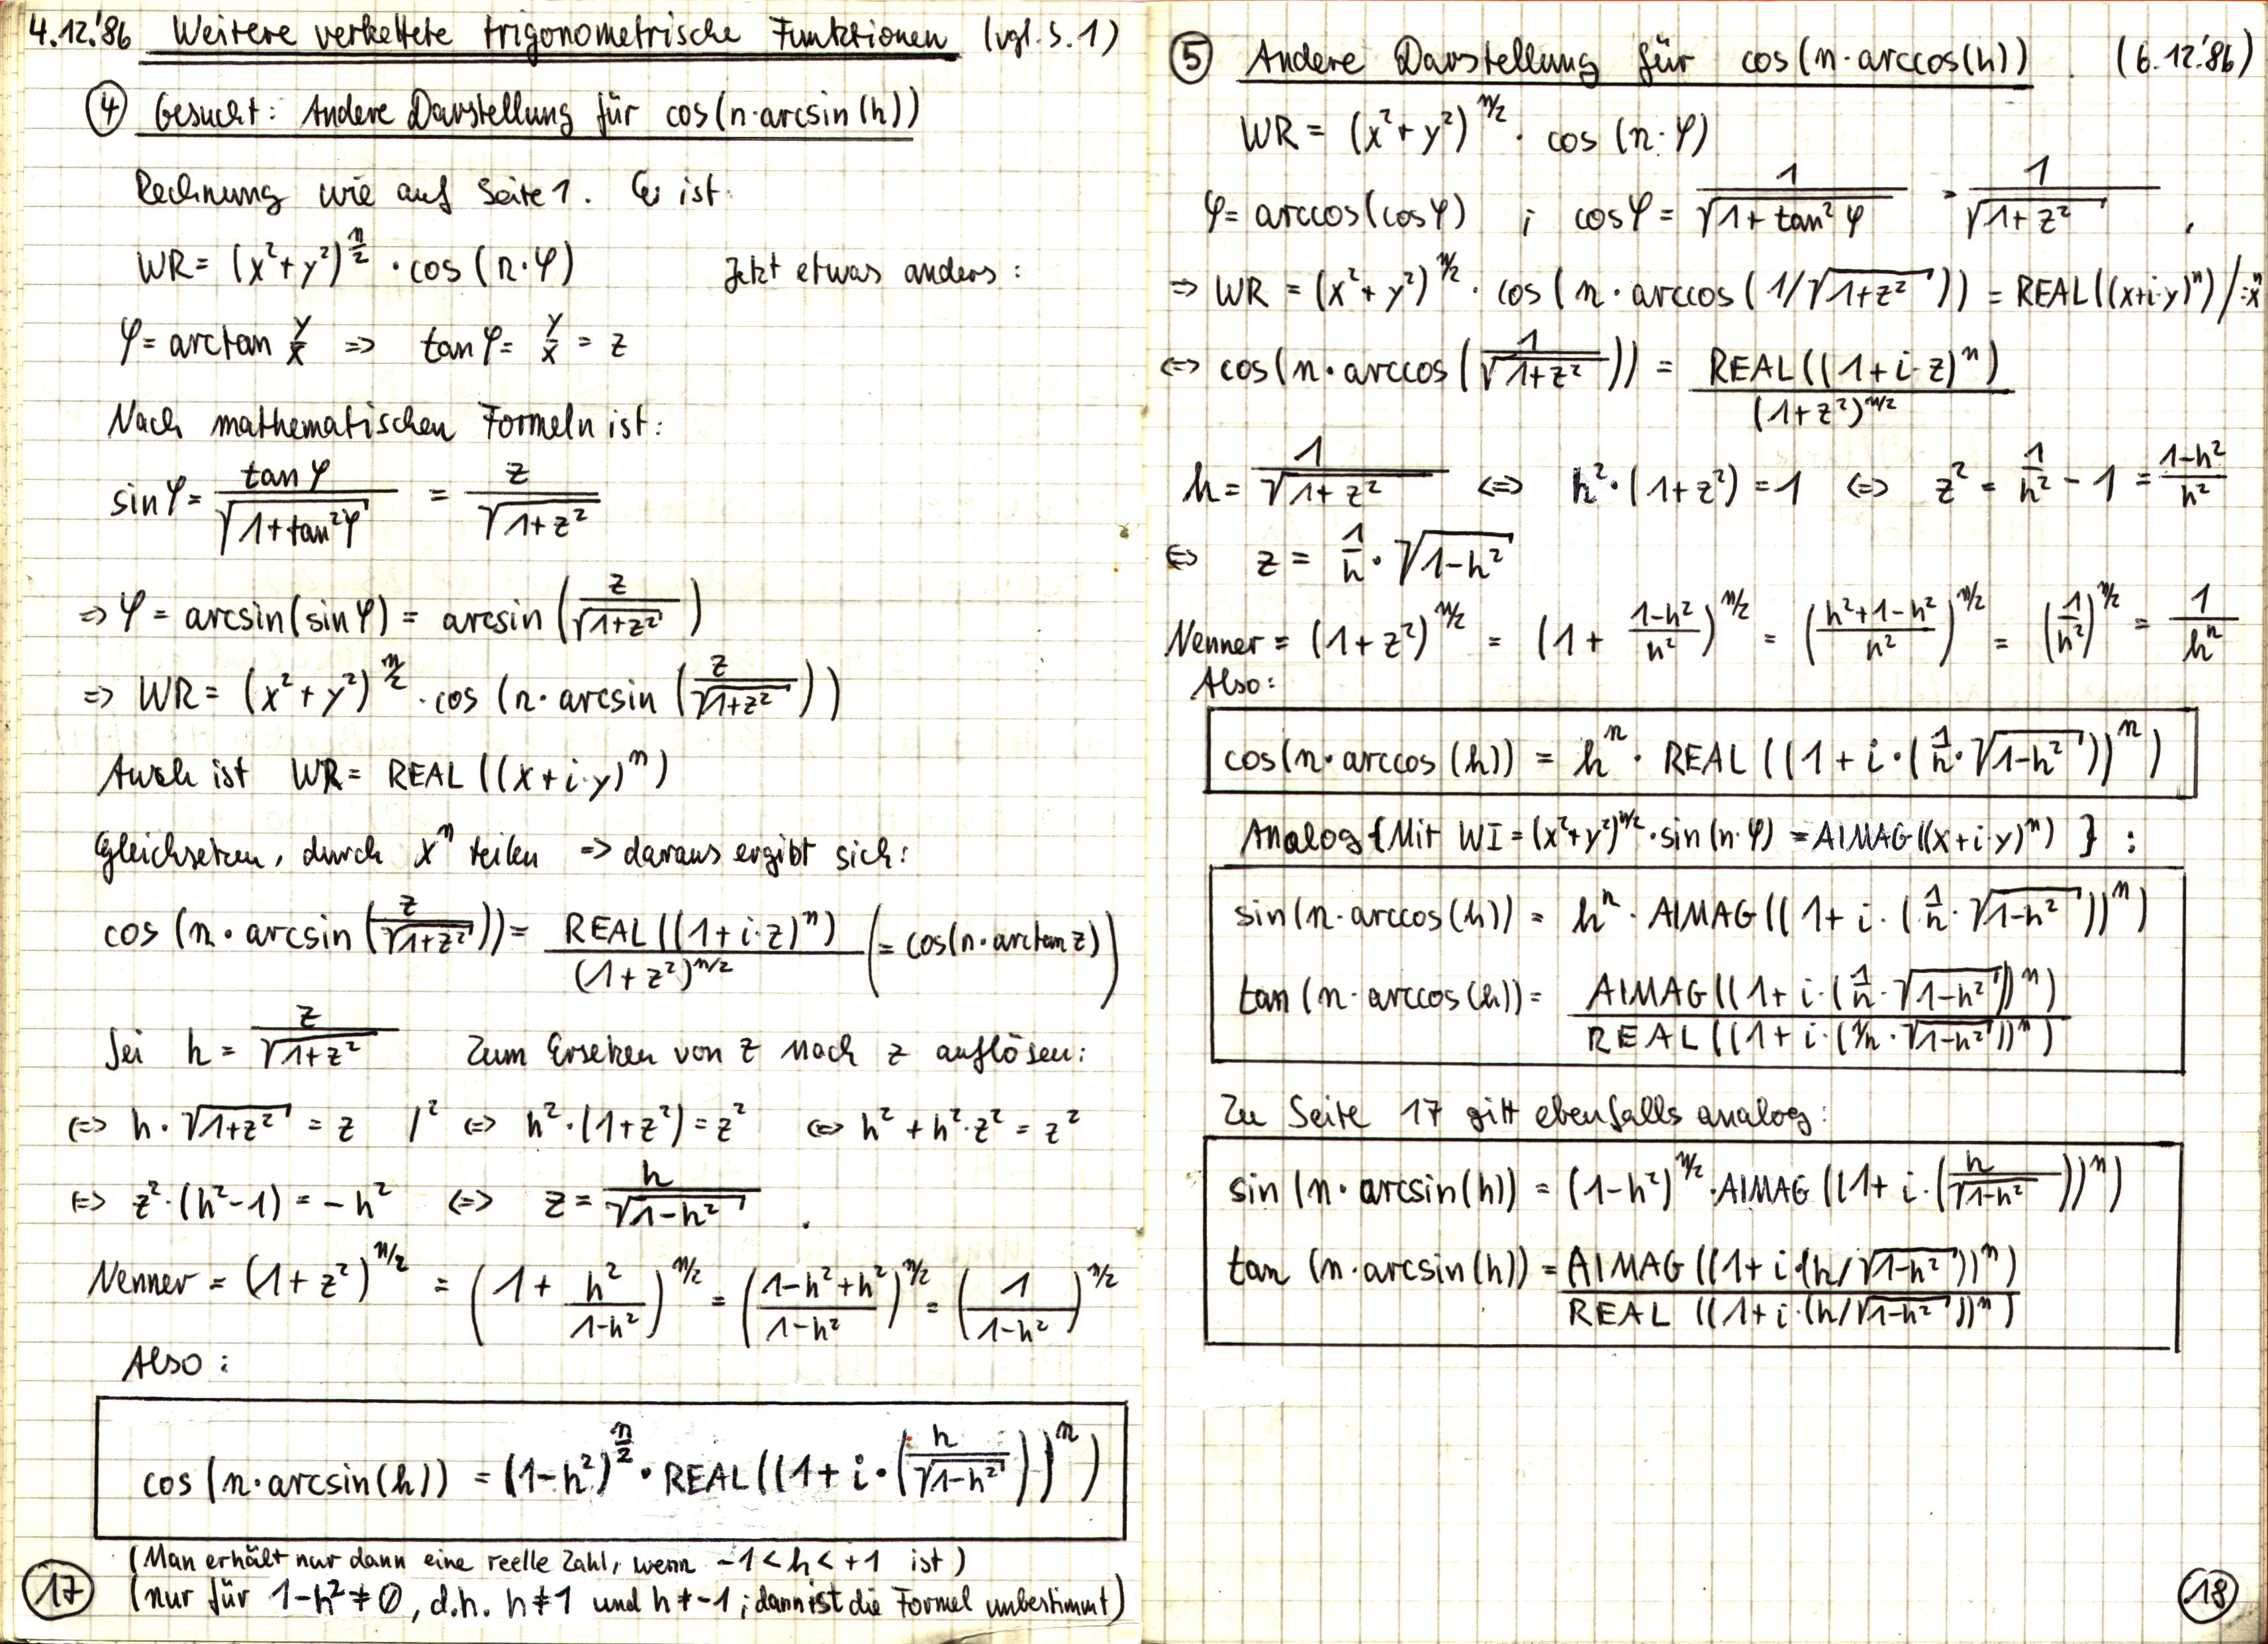 4.12.'86 Weitere verkettete trigonometrische Funktionen (vgl. S. 1)
④ Gesucht: Andere Darstellung für cos(n·arcsin(h))
Rechnung wie auf Seite 1. Es ist:
WR = (x²+y²)^(n/2) · cos(n·φ) Jetzt etwas anders:
φ = arctan y/x ⇒ tan φ = y/x = z
Nach mathematischen Formeln ist:
sin φ = tan φ / √(1+tan²φ) = z / √(1+z²)
⇒ φ = arcsin(sin φ) = arcsin(z/√(1+z²))
⇒ WR = (x²+y²)^(n/2) · cos(n·arcsin(z/√(1+z²)))
Auch ist WR = REAL((x+i·y)^n)
Gleichsetzen, durch x^n teilen ⇒ daraus ergibt sich:
cos(n·arcsin(z/√(1+z²))) = REAL((1+i·z)^n) / (1+z²)^(n/2) (= cos(n·arctan z))
Sei h = z/√(1+z²) Zum Ersetzen von z nach z auflösen:
⇔ h·√(1+z²) = z |² ⇔ h²·(1+z²) = z² ⇔ h²+h²·z² = z²
⇔ z²·(h²-1) = -h² ⇔ z = h/√(1-h²) .
Nenner = (1+z²)^(n/2) = (1 + h²/(1-h²))^(n/2) = ((1-h²+h²)/(1-h²))^(n/2) = (1/(1-h²))^(n/2)
Also:
cos(n·arcsin(h)) = (1-h²)^(n/2) · REAL((1+i·(h/√(1-h²)))^n)
(Man erhält nur dann eine reelle Zahl, wenn -1<h<+1 ist)
(nur für 1-h²≠0, d.h. h≠1 und h≠-1; dann ist die Formel unbestimmt)
17
⑤ Andere Darstellung für cos(n·arccos(h)) . (6.12.'86)
WR = (x²+y²)^(n/2) · cos(n·φ)
φ = arccos(cos φ) ; cos φ = 1/√(1+tan²φ) = 1/√(1+z²) ,
⇒ WR = (x²+y²)^(n/2) · cos(n·arccos(1/√(1+z²))) = REAL((x+i·y)^n) /:x^n
⇔ cos(n·arccos(1/√(1+z²))) = REAL((1+i·z)^n) / (1+z²)^(n/2)
h = 1/√(1+z²) ⇔ h²·(1+z²) = 1 ⇔ z² = 1/h² - 1 = (1-h²)/h²
⇔ z = 1/h · √(1-h²)
Nenner = (1+z²)^(n/2) = (1 + (1-h²)/h²)^(n/2) = ((h²+1-h²)/h²)^(n/2) = (1/h²)^(n/2) = 1/h^n
Also:
cos(n·arccos(h)) = h^n · REAL((1+i·(1/h·√(1-h²)))^n)
Analog {Mit WI = (x²+y²)^(n/2)·sin(n·φ) = AIMAG((x+i·y)^n) } :
sin(n·arccos(h)) = h^n · AIMAG((1+i·(1/h·√(1-h²)))^n)
tan(n·arccos(h)) = AIMAG((1+i·(1/h·√(1-h²)))^n) / REAL((1+i·(1/h·√(1-h²)))^n)
Zu Seite 17 gilt ebenfalls analog:
sin(n·arcsin(h)) = (1-h²)^(n/2) · AIMAG((1+i·(h/√(1-h²)))^n)
tan(n·arcsin(h)) = AIMAG((1+i·(h/√(1-h²)))^n) / REAL((1+i·(h/√(1-h²)))^n)
18